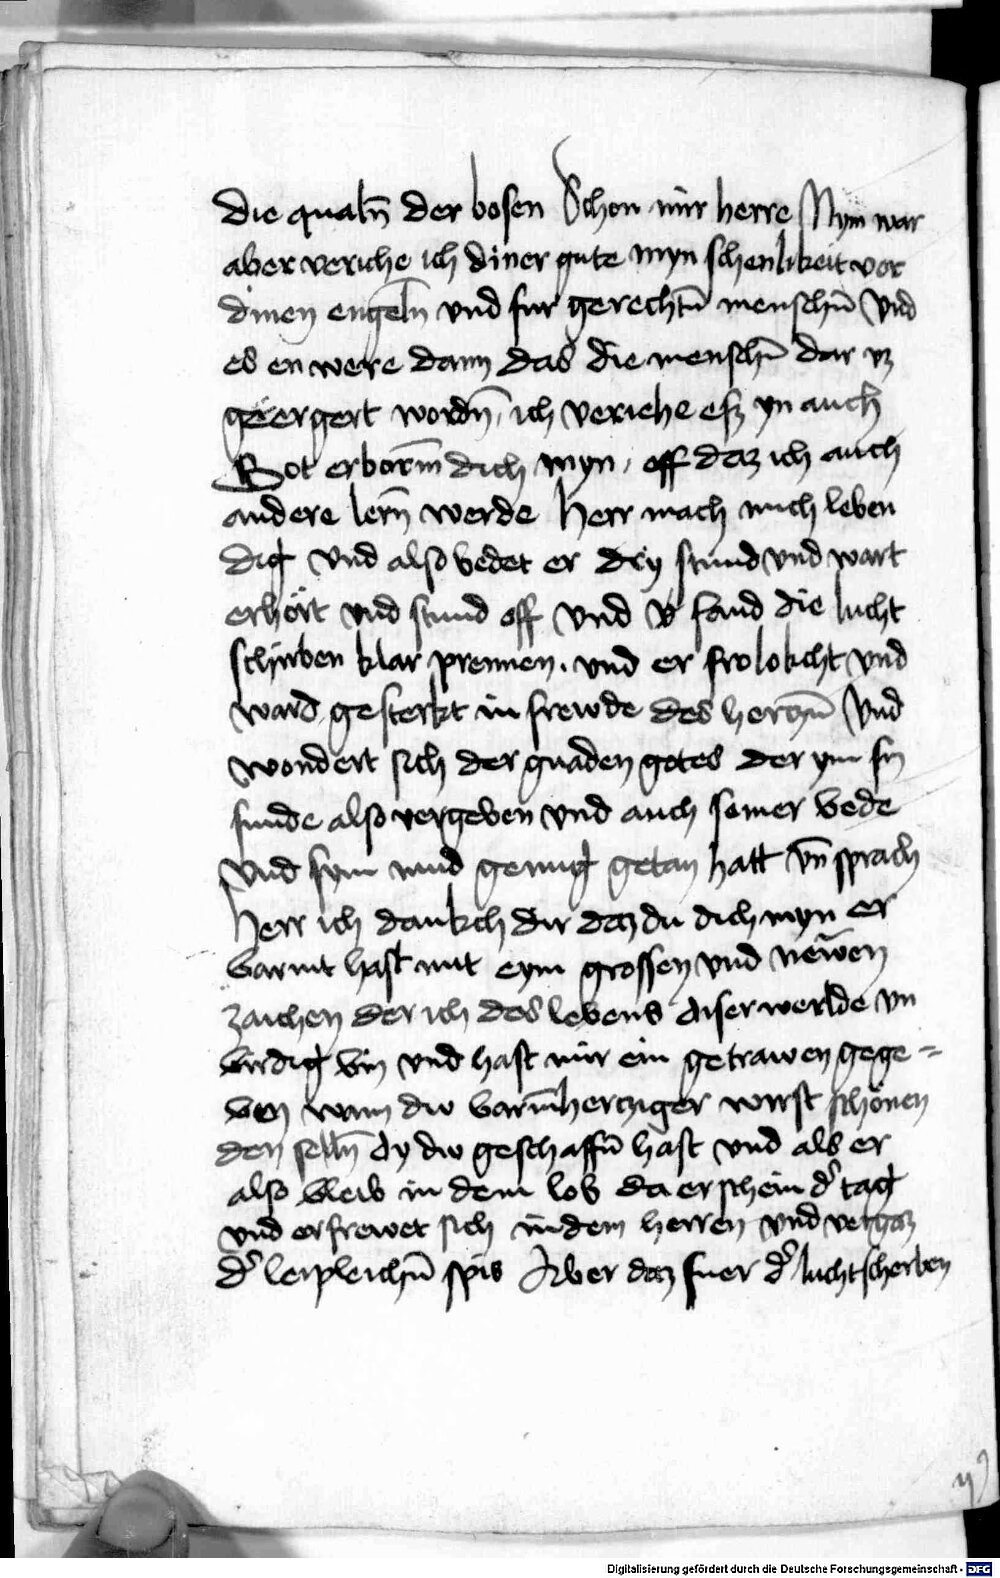 die qualn̄ der bosen Schon mir herre Nym war
aber veriche ich diner gute myn schenlikeit vor
dinen engeln̄ vnd fur gerechtn̄ menschn̄ Vnd
es en were dann das die menschn̄ dar vz
geergert wordn̄, ich veriehe esz yn auch
Got erbarm̄ dich myn, off daz ich auch
andere lern̄ werde Herr mach mich leben
dig Vnd also bedet er dry stund vnd wart
erhört vnd stund off Vnd fand die lucht
schirben klar prennen. vnd er frolokcht vnd
ward gesterkt in frewde des herczn̄ Vnd
wondert sich der gnaden gotes der ym sin
sunde also vergeben vnd auch seiner bede
Vnd sym mud genug getan hatt vn̄ sprach
Herr ich dankch dir daz du dich myn er
barmt hast mit eym grossen vnd newen
zaichen der ich des lebens diser werlde vn
birdig bin vnd hast mir ein getrawen gege=
ben wann dw barm̄hercziger wirst schönen
den selln̄ dy dw geschaffn̄ hast vnd als er
also bleib in dem lob da er schein d' tag
vnd erfrewet sich in dem herren vnd vergaz
d' leipleichn̄ spis Aber daz fuer d' luchtscherben